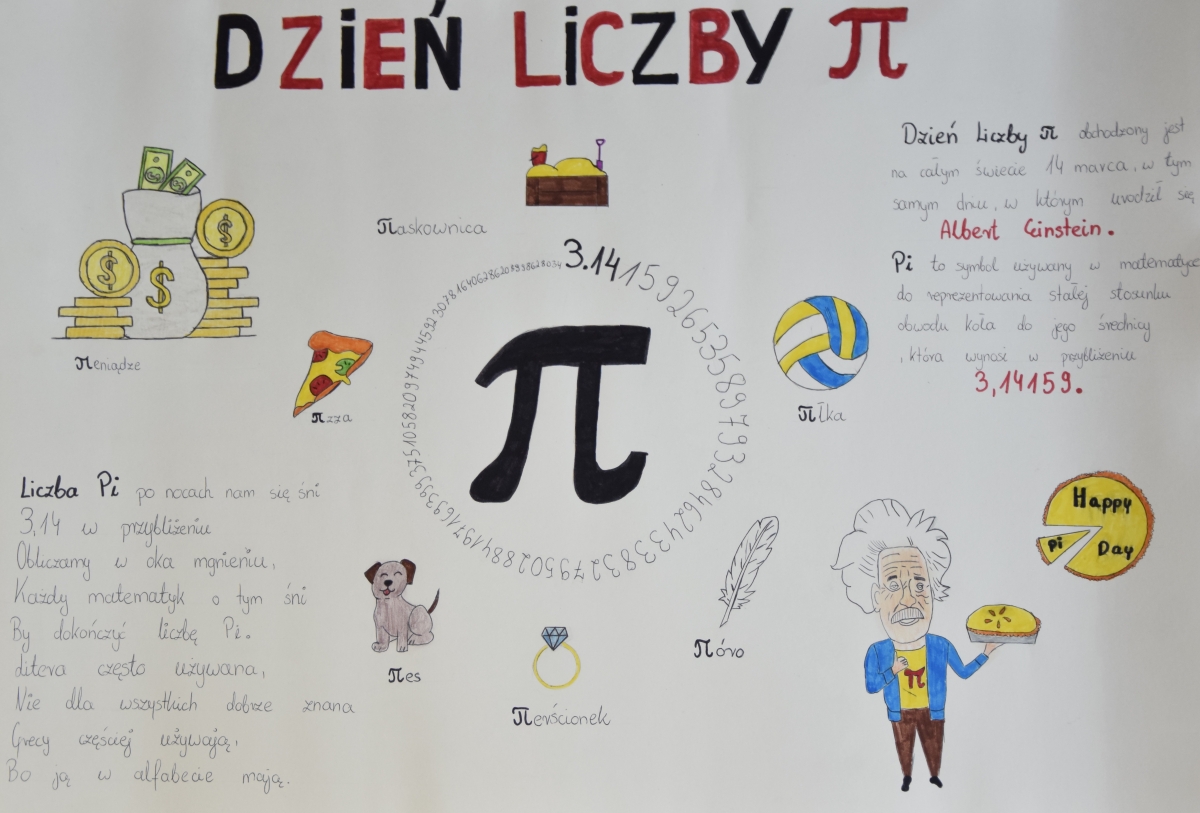 DZIEŃ LICZBY π
Dzień Liczby π obchodzony jest
na całym świecie 14 marca, w tym
samym dniu, w którym urodził się
Albert Einstein.
Pi to symbol używany w matematyce
do reprezentowania stałej stosunku
obwodu koła do jego średnicy
, która wynosi w przybliżeniu
3,14159.
πaskownica
πeniądze
πzza
πłka
3.14159265358979323846243383279502884197169399375105820974944592307816406286208998628034
π
Liczba Pi po nocach nam się śni
3,14 w przybliżeniu
Obliczamy w oka mgnieniu,
Każdy matematyk o tym śni
By dokończyć liczbę Pi.
Litera często używana,
Nie dla wszystkich dobrze znana
Grecy częściej używają,
Bo ją w alfabecie mają.
πes
πerścionek
πóro
π
Happy
Pi
Day